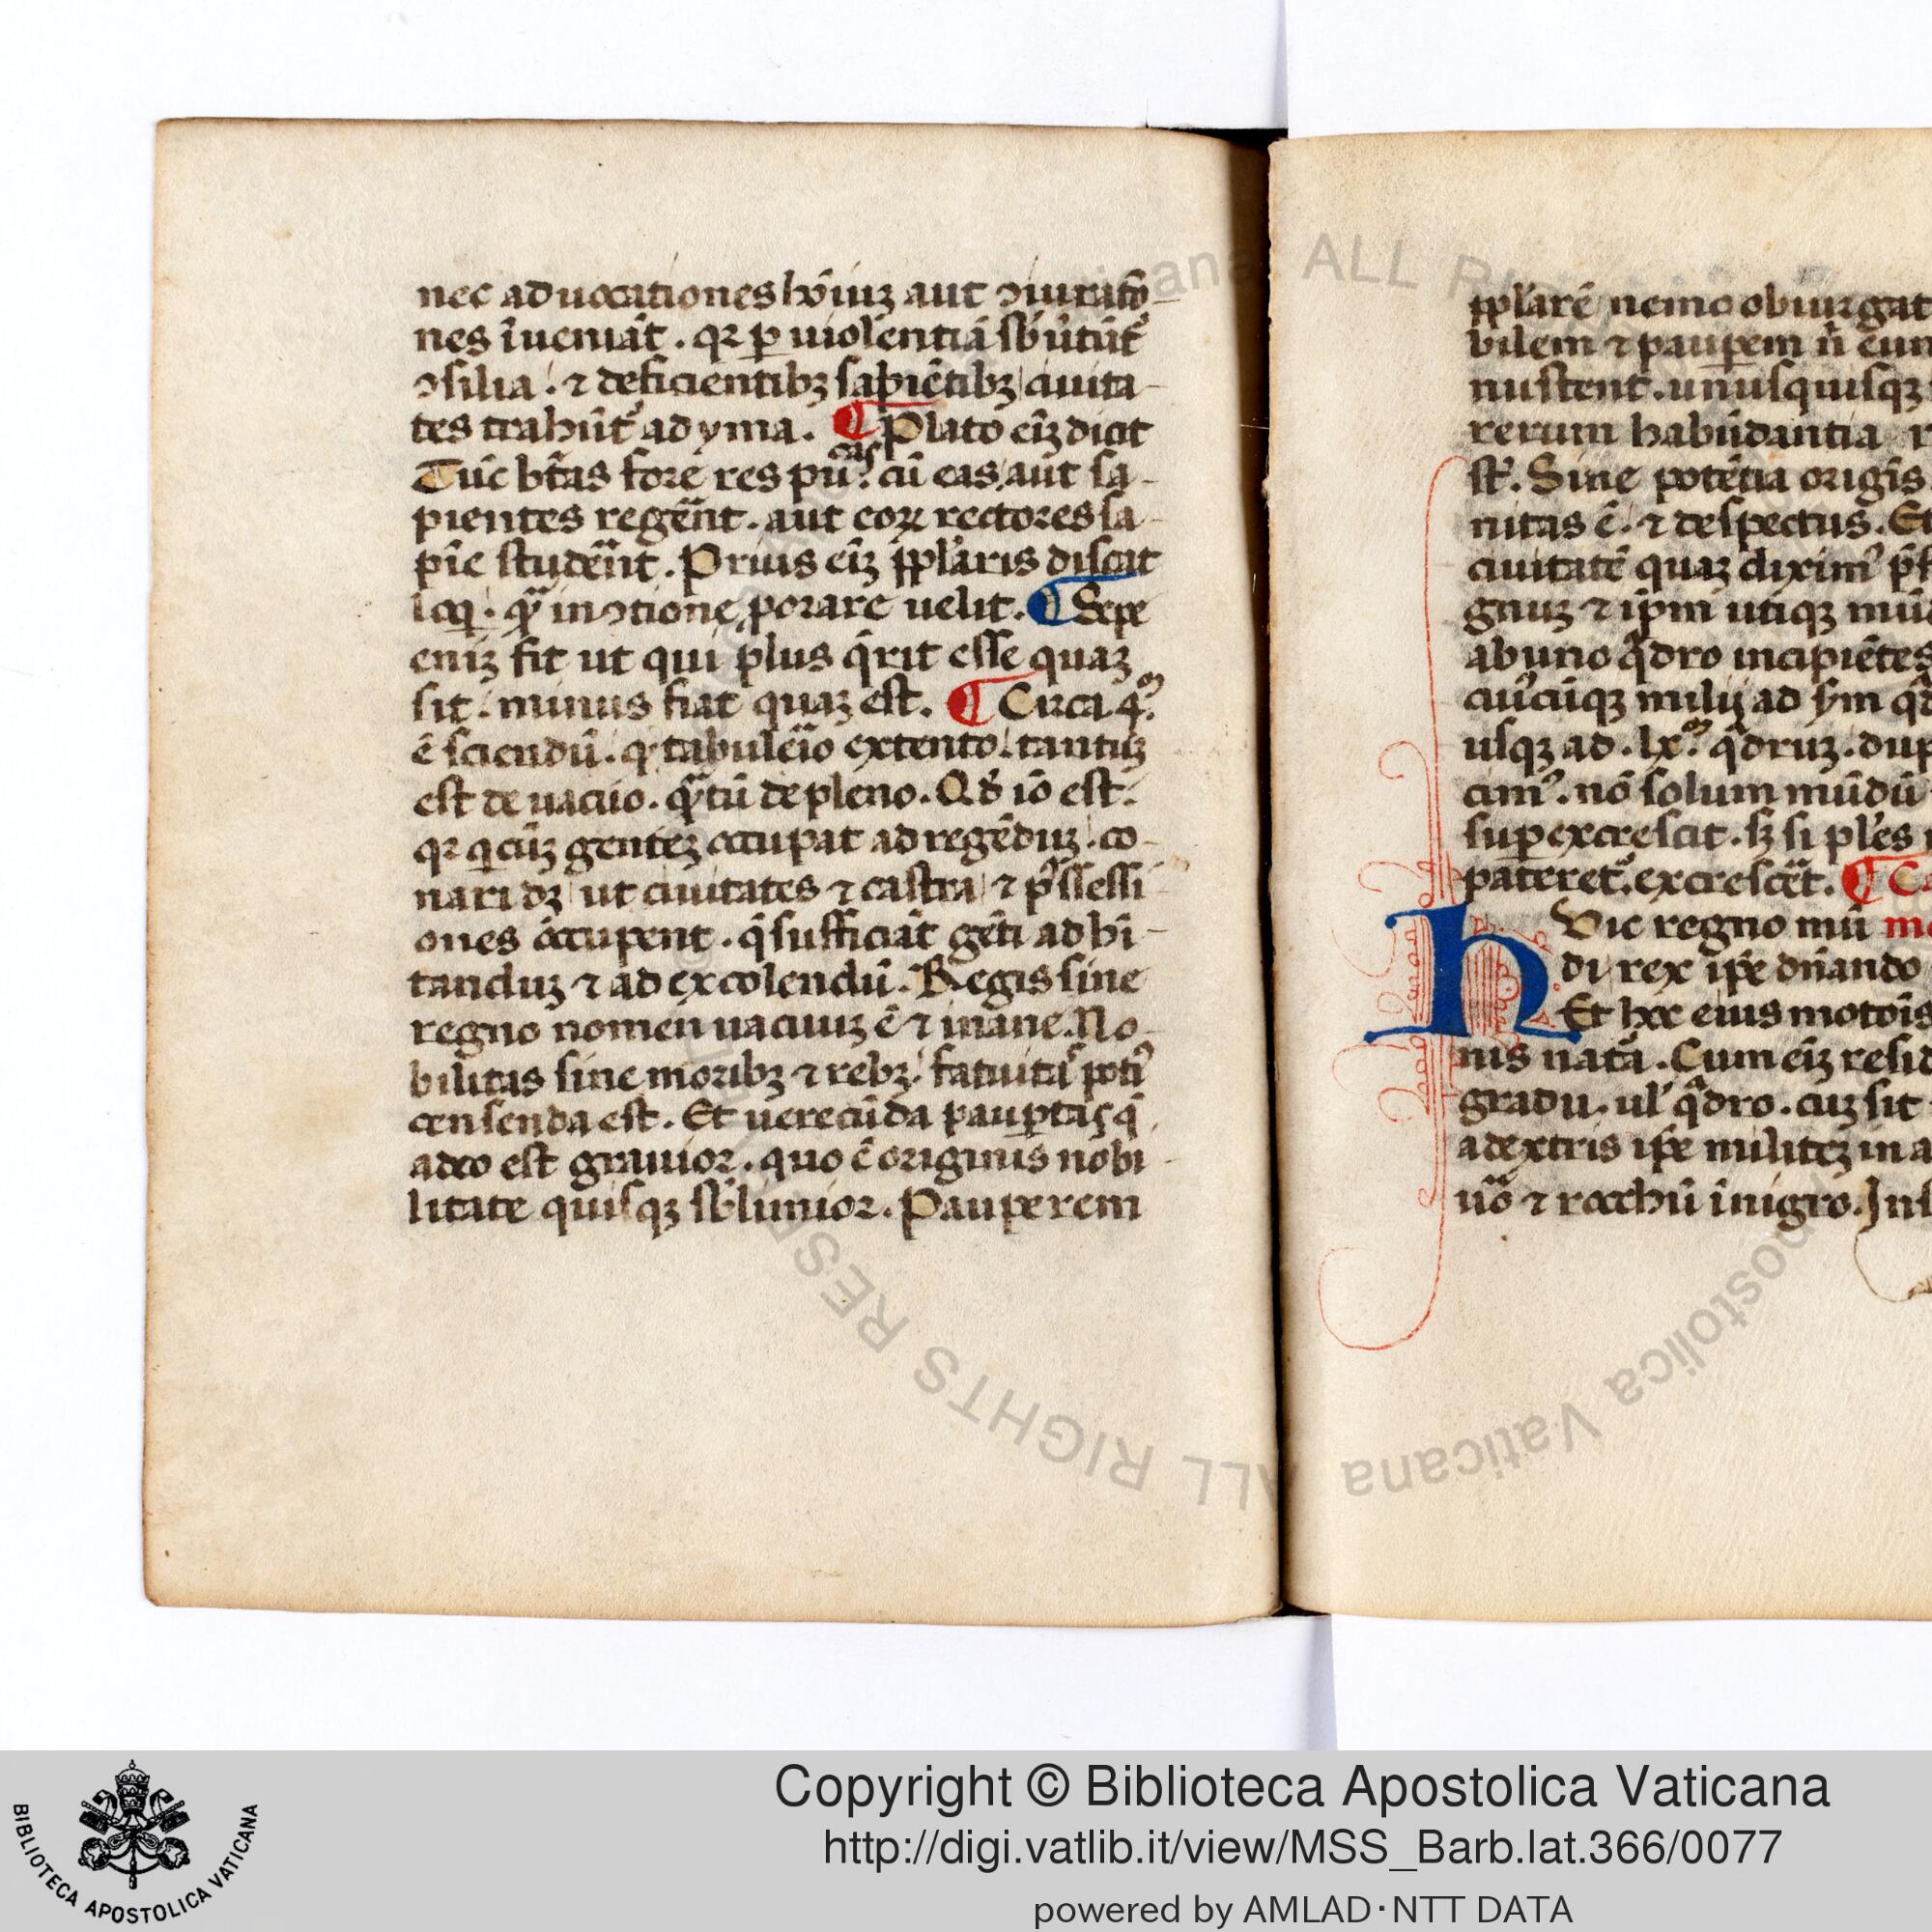 nec aduocationes hõiuʒ aut ↄiuratõ-
nes ĩueniãt . qꝛ ꝑ uiolentiã sb̾u̾tũt᷑
ↄsilia . ⁊ deficientibʒ sapiẽtibʒ ciuita-
tes trahũt᷑ ad yma . ¶ Plato eĩʒ dicit
Tũc bt̃as fore res pũ.cas cũ eas aut sa-
pientes regẽnt . aut eoꝝ rectores sa-
pĩe studẽnt . Prius eĩʒ ꝓplaris discat
loq̃ . qͣ in ↄtione ꝑorare uelit . ¶ Sepe
eniʒ fit ut qui plus q̃rit esse quaʒ
sit . minus fiat quaʒ est . ¶ Circa 4.m
ẽ sciendũ . ꝙ tabuleͥo extento . tantuʒ
est de uacuo . qͣtũ de pleno . Qđ iõ est .
qꝛ q̃cũʒ genteʒ occupat ad regẽduʒ . co-
nari dʒ ut ciuitates ⁊ castra ⁊ possessi-
ones occupent . q̃ sufficiãt gẽti ad hĩ-
tanduʒ ⁊ ad excolendũ . Regis sine
regno nomen uacuuʒ ẽ ⁊ inane . No-
bilitas sine moribʒ ⁊ rebʒ . fatuitas poti᷑
censenda est . Et uerecũda pauꝑtas q̃
adeo est grauior . quo ẽ originis nobi-
litate quisqʒ sb̾limior . Pauperem
ꝓplarẽ nemo obiurgat
bilem ⁊ pauꝑem ñ
nustent . unusquisqʒ
rerum habũdantia
st᷑ . Sine potẽtia origĩs
nitas ẽ . ⁊ despectus . Et
ciuitatẽ quaʒ dixim᷒
gnuʒ ⁊ ip̃m utiqʒ
ab uno q̃dro incipiẽtes
cu᷑cũqʒ milij ad
usqʒ ad . lx.m q̃druʒ .
cim᷒ . nõ solum mũdũ
suꝑexcrescit . sʒ si pl̾es
pateret᷑ . excrescẽt . ¶
hVic regno
di rex ip̃e dñando
Et hec eius motoĩs
nis natã . Cum eĩʒ
gradu . ul̾ q̃dro . cuʒ sit
a dextris ip̃e militeʒ in
uõ ⁊ rocchũ ĩ nigro .
ALL RIGHTS RES
Apostolica Vaticana
Copyright © Biblioteca Apostolica Vaticana
http://digi.vatlib.it/view/MSS_Barb.lat.366/0077
powered by AMLAD·NTT DATA
BIBLIOTECA APOSTOLICA VATICANA